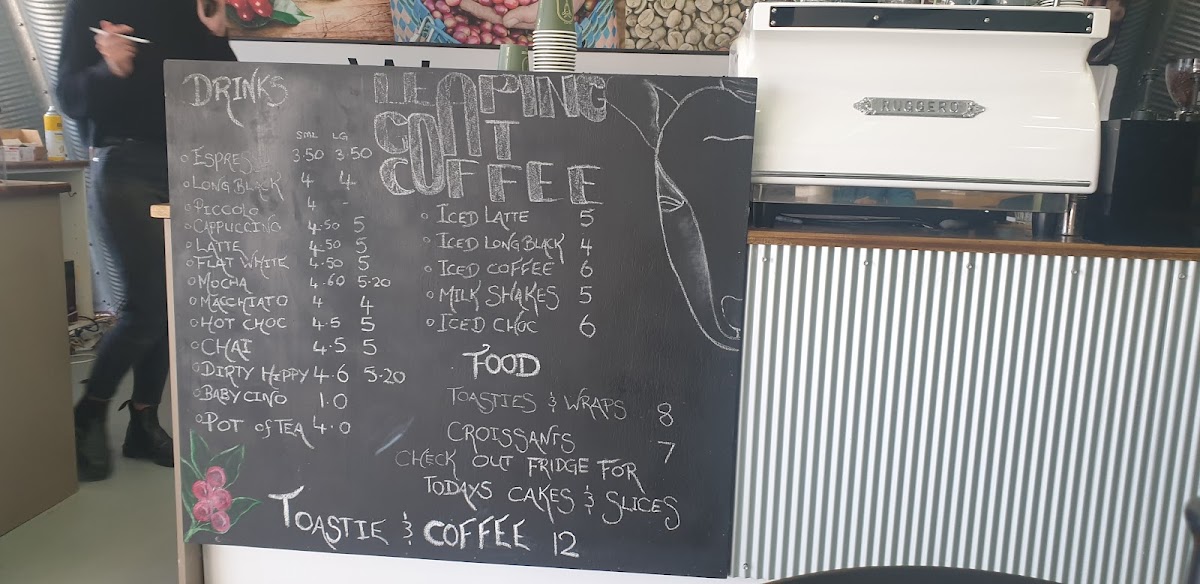 DRINKS
LEAPING
GOAT
COFFEE
SML LG
ESPRESSO 3.50 3.50
LONG BLACK 4 4
PICCOLO 4 -
CAPPUCCINO 4.50 5
LATTE 4.50 5
FLAT WHITE 4.50 5
MOCHA 4.60 5.20
MACCHIATO 4 4
HOT CHOC 4.5 5
CHAI 4.5 5
DIRTY HIPPY 4.6 5.20
BABYCINO 1.0
POT of TEA 4.0
ICED LATTE 5
ICED LONG BLACK 4
ICED COFFEE 6
MILK SHAKES 5
ICED CHOC 6
FOOD
TOASTIES & WRAPS 8
CROISSANTS 7
CHECK OUT FRIDGE FOR
TODAYS CAKES & SLICES
TOASTIE & COFFEE 12
RUGGERO